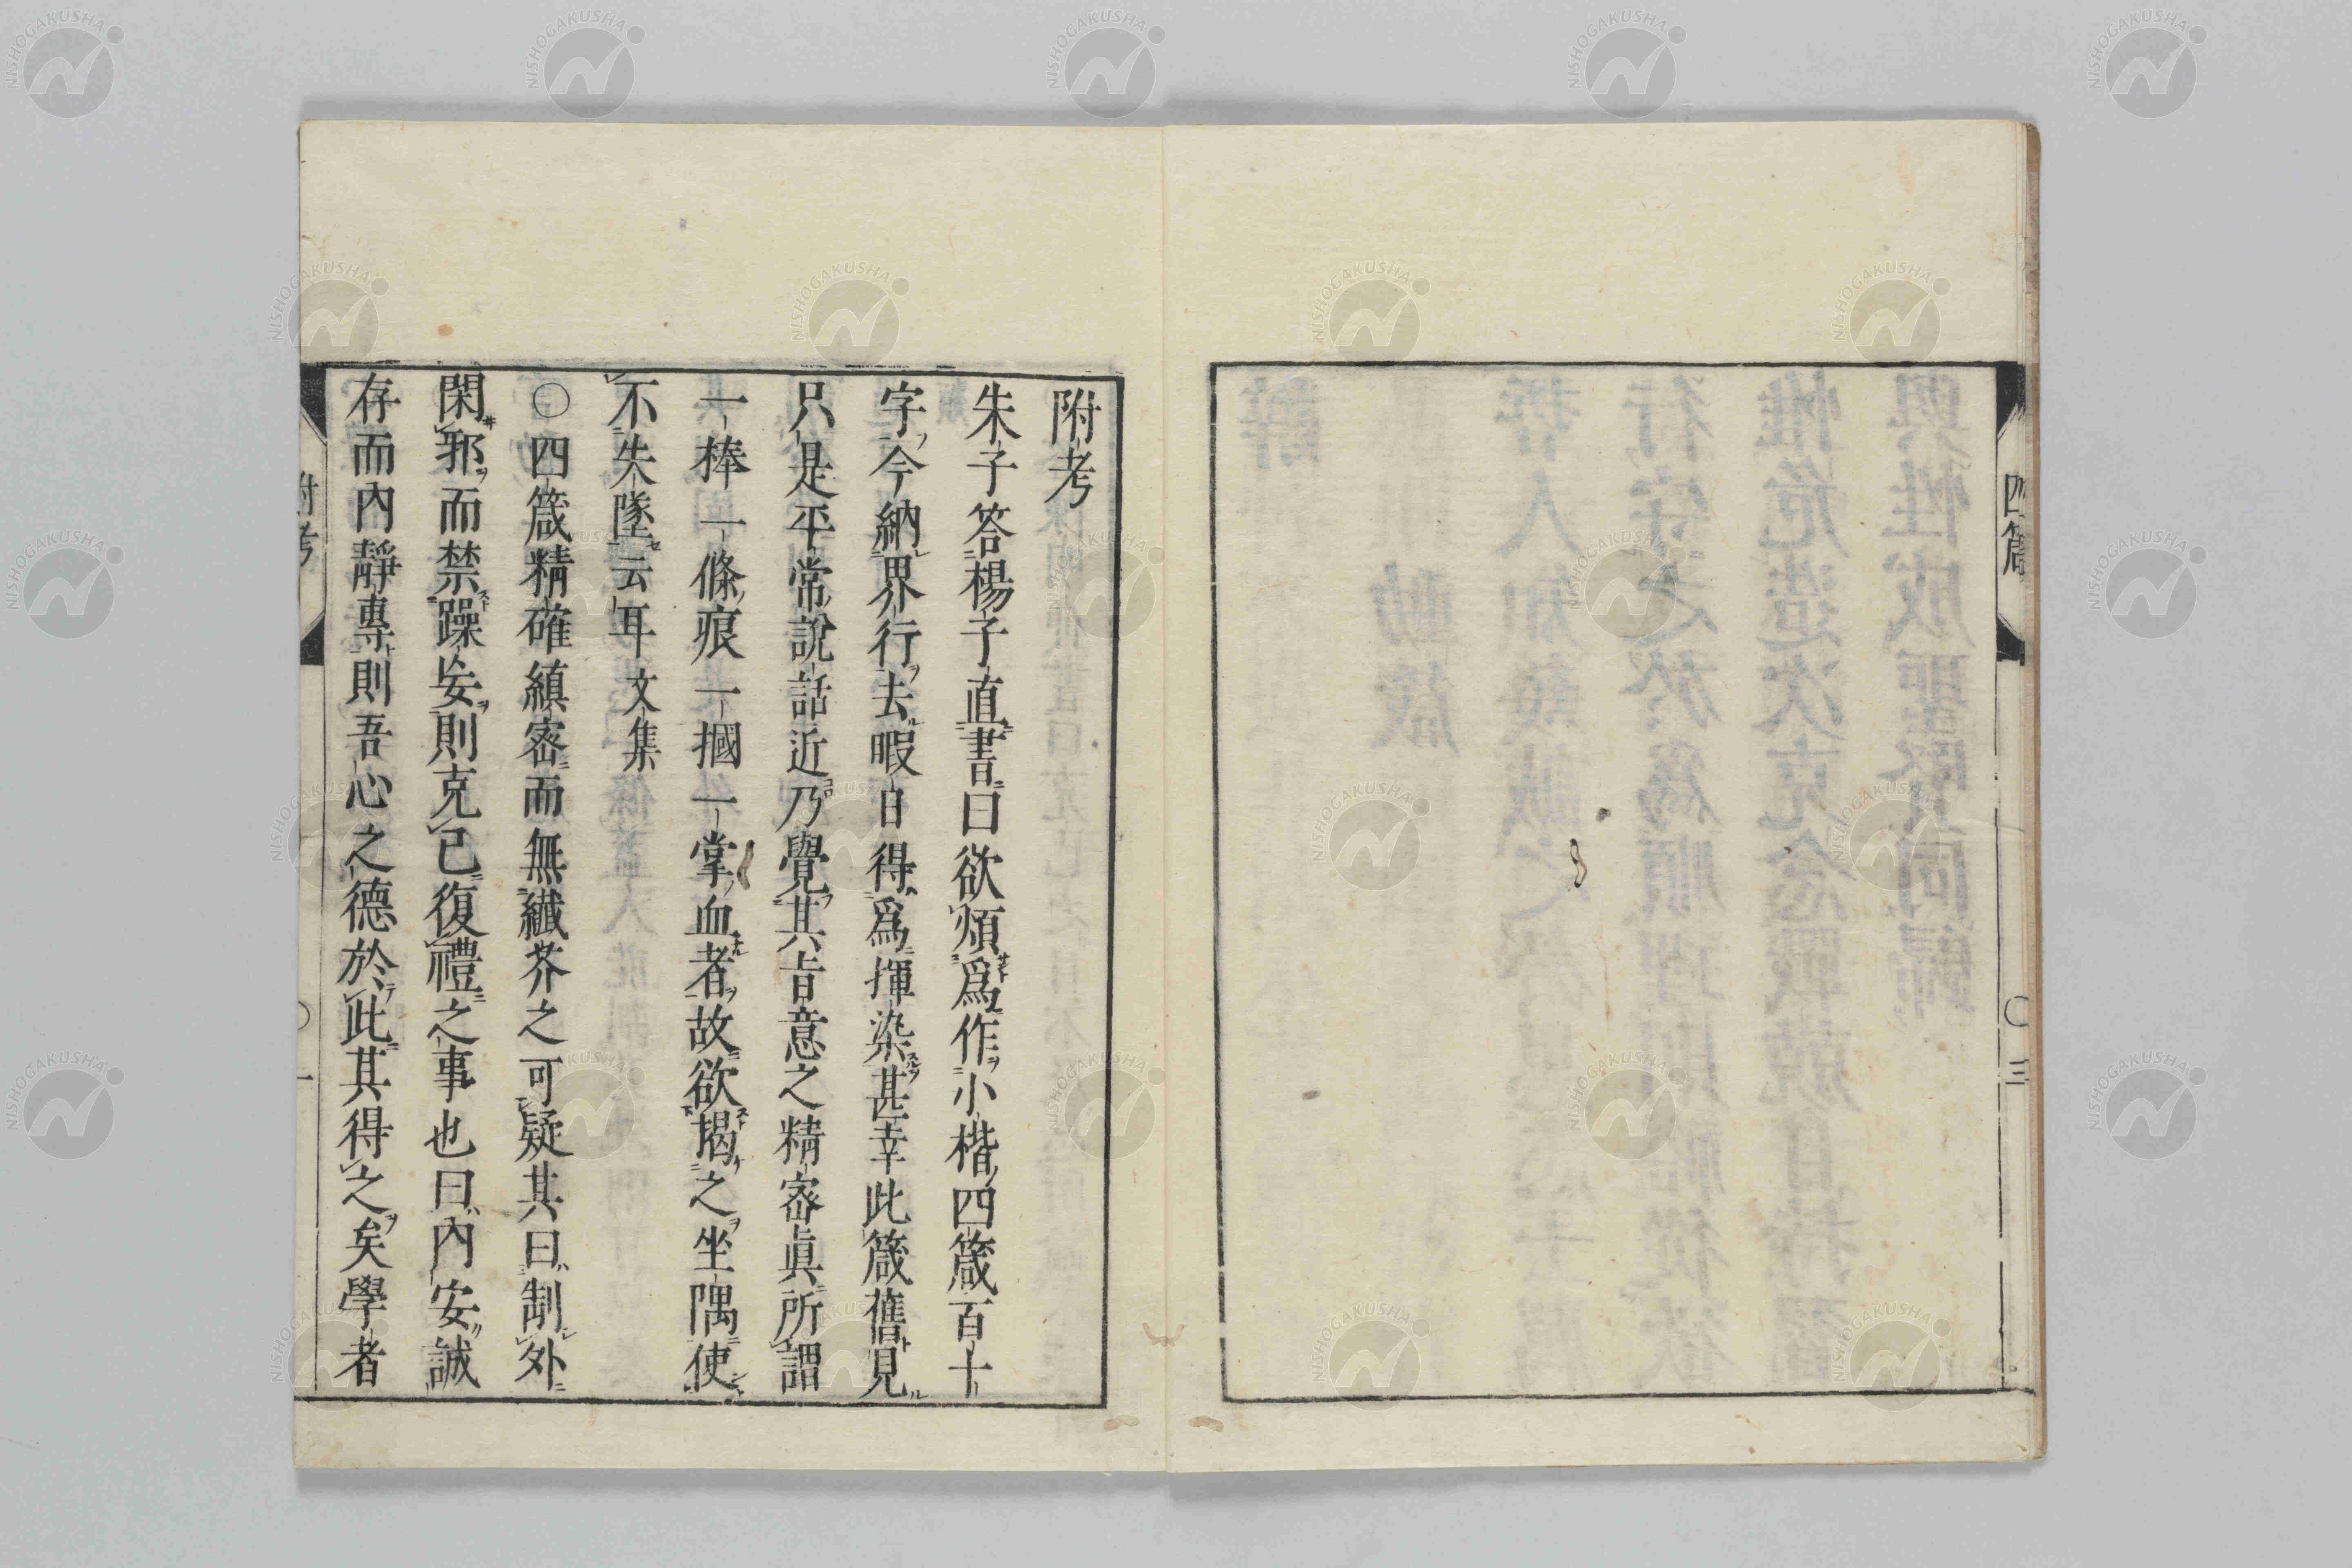 四箴
〇三
附考
朱子答楊子直書曰欲煩爲作小楷四箴百十
字今納界行去暇日得爲揮染甚幸此箴舊見
只是平常說話近乃覺其旨意之精密眞所謂
一棒一條痕一摑一掌血者故欲揭之坐隅使
不失墜云耳文集
〇四箴精確縝密而無纖芥之可疑其曰制外
閑邪而禁躁妄則克己復禮之事也曰內安誠
存而內靜專則吾心之德於此其得之矣學者
附考
〇一